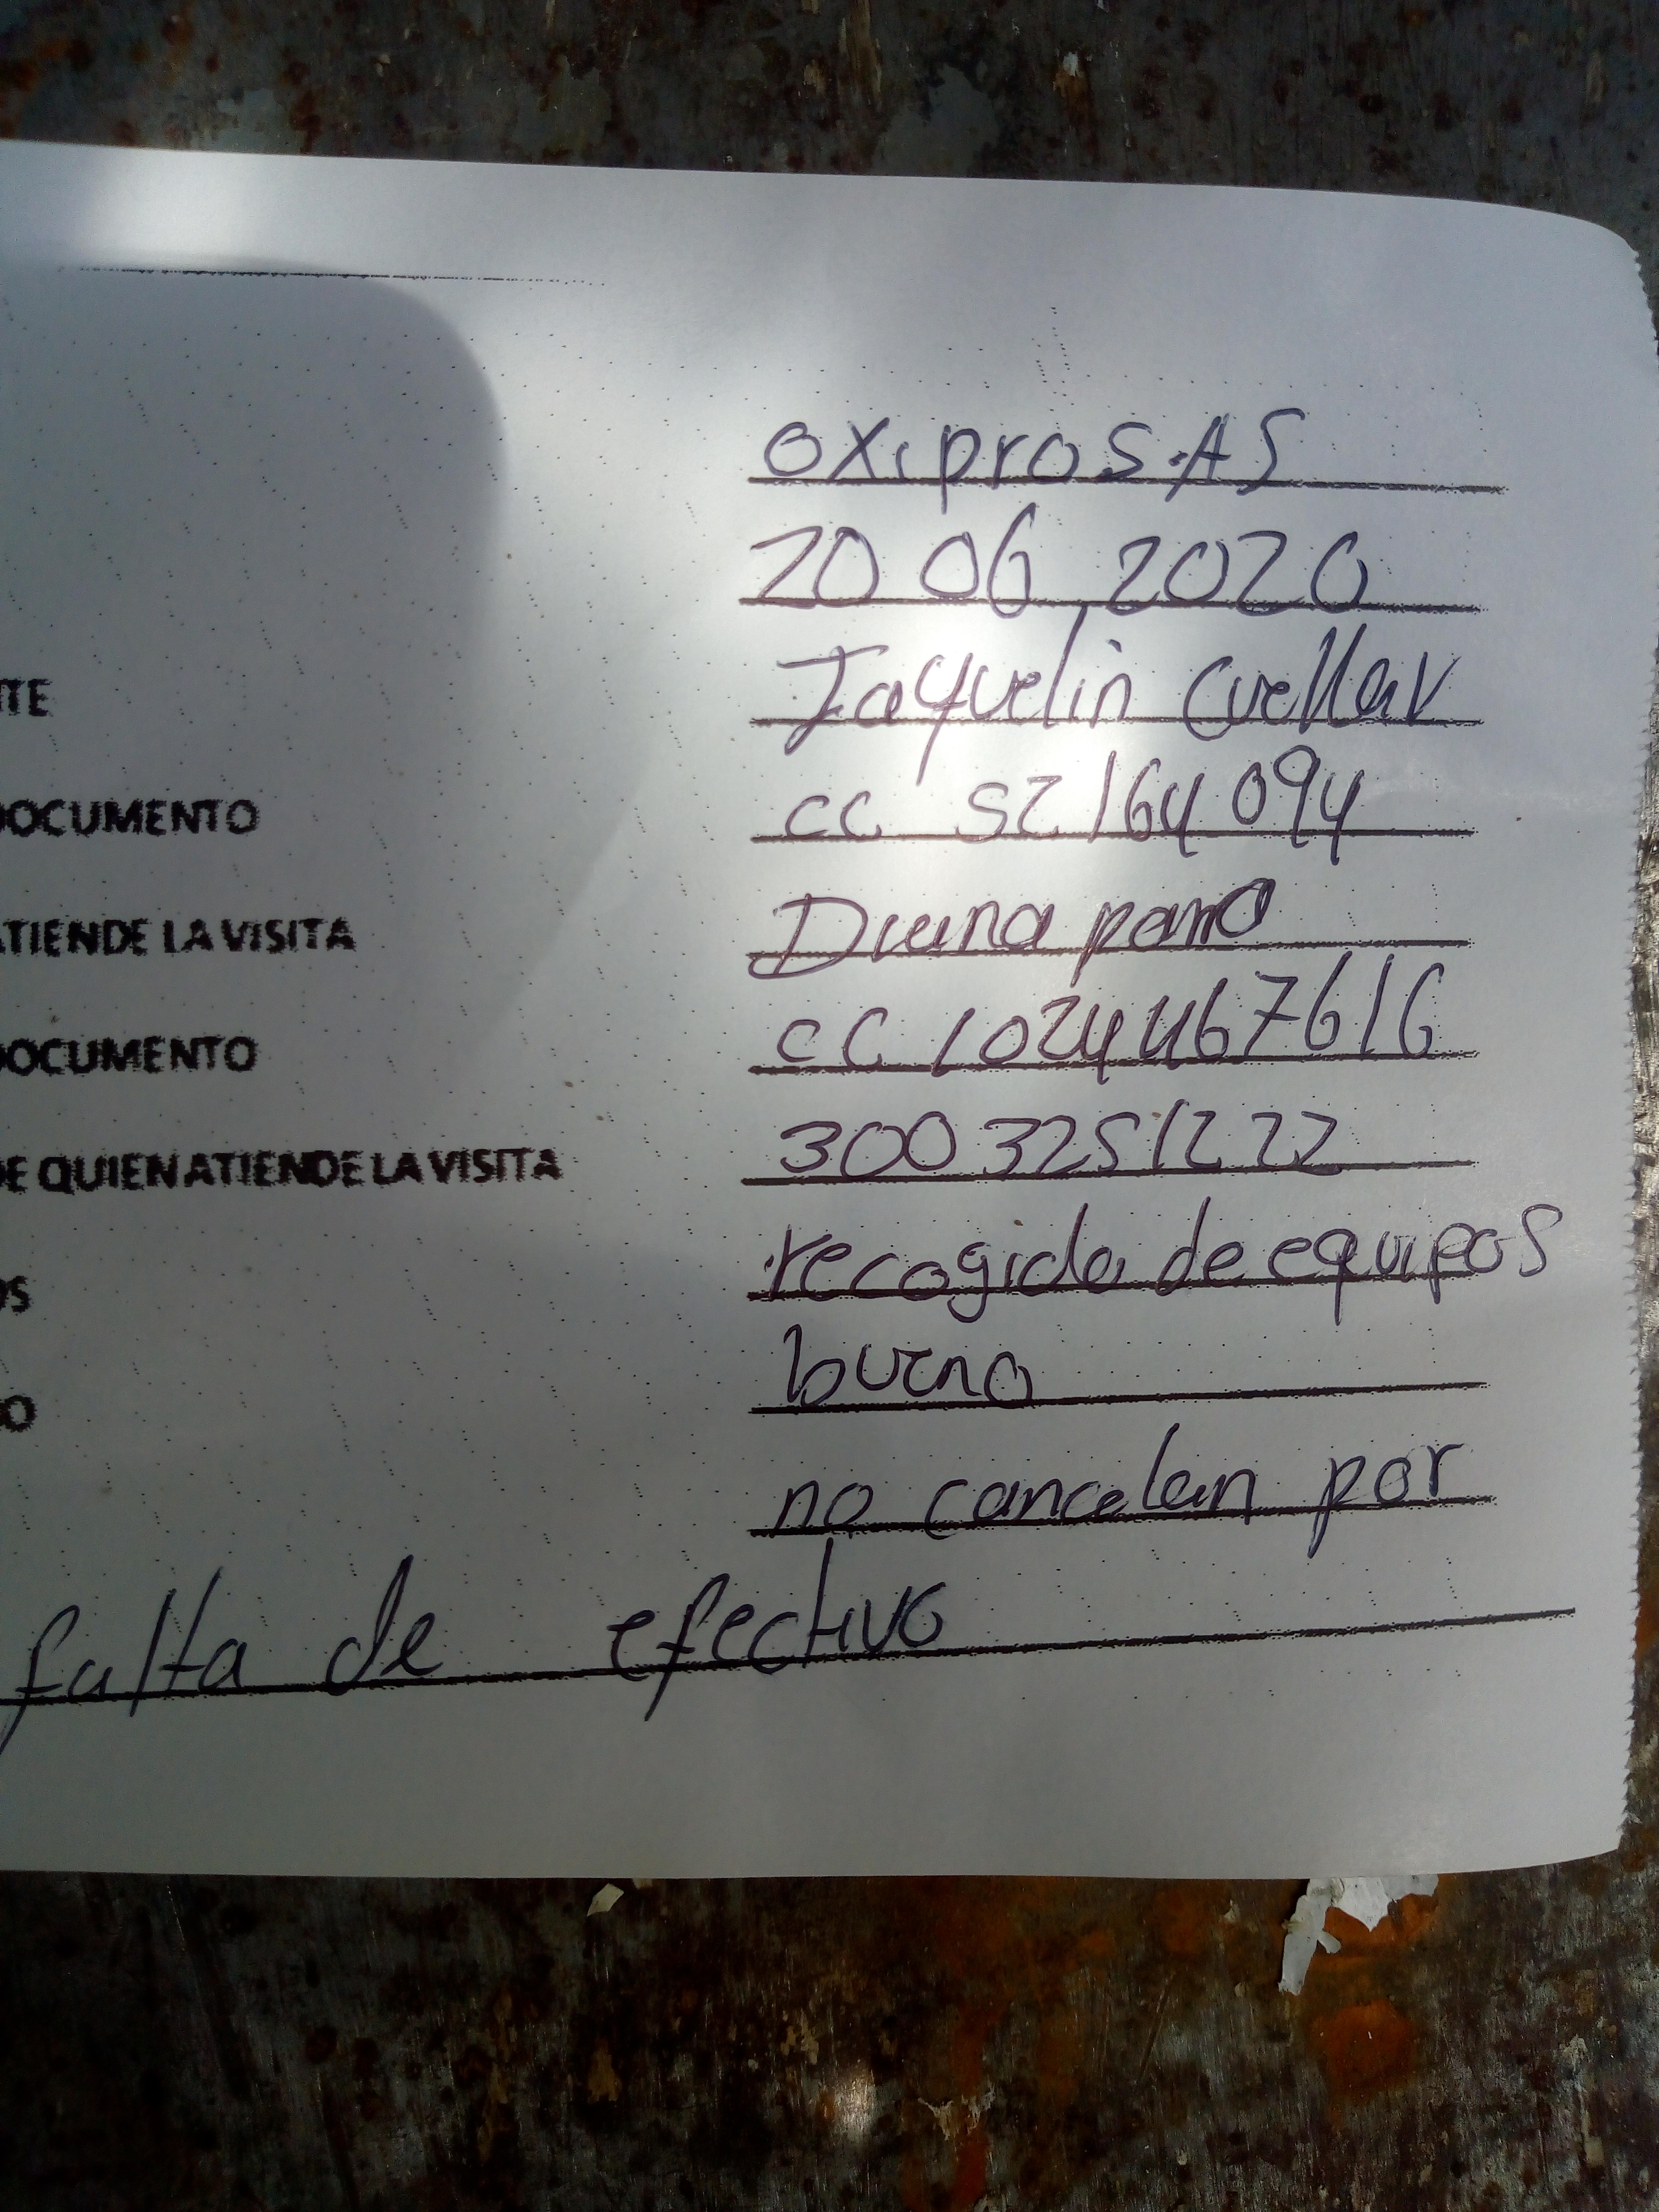 oxiproS.AS
20 06 2020
ITE Jaquelin Cuellar
DOCUMENTO cc 52164094
ATIENDE LA VISITA Diana
DOCUMENTO cc 1024467616
DE QUIEN ATIENDE LA VISITA 3003251222
OS recogida de equipos
O bueno
no cancelan por
falta de efectivo